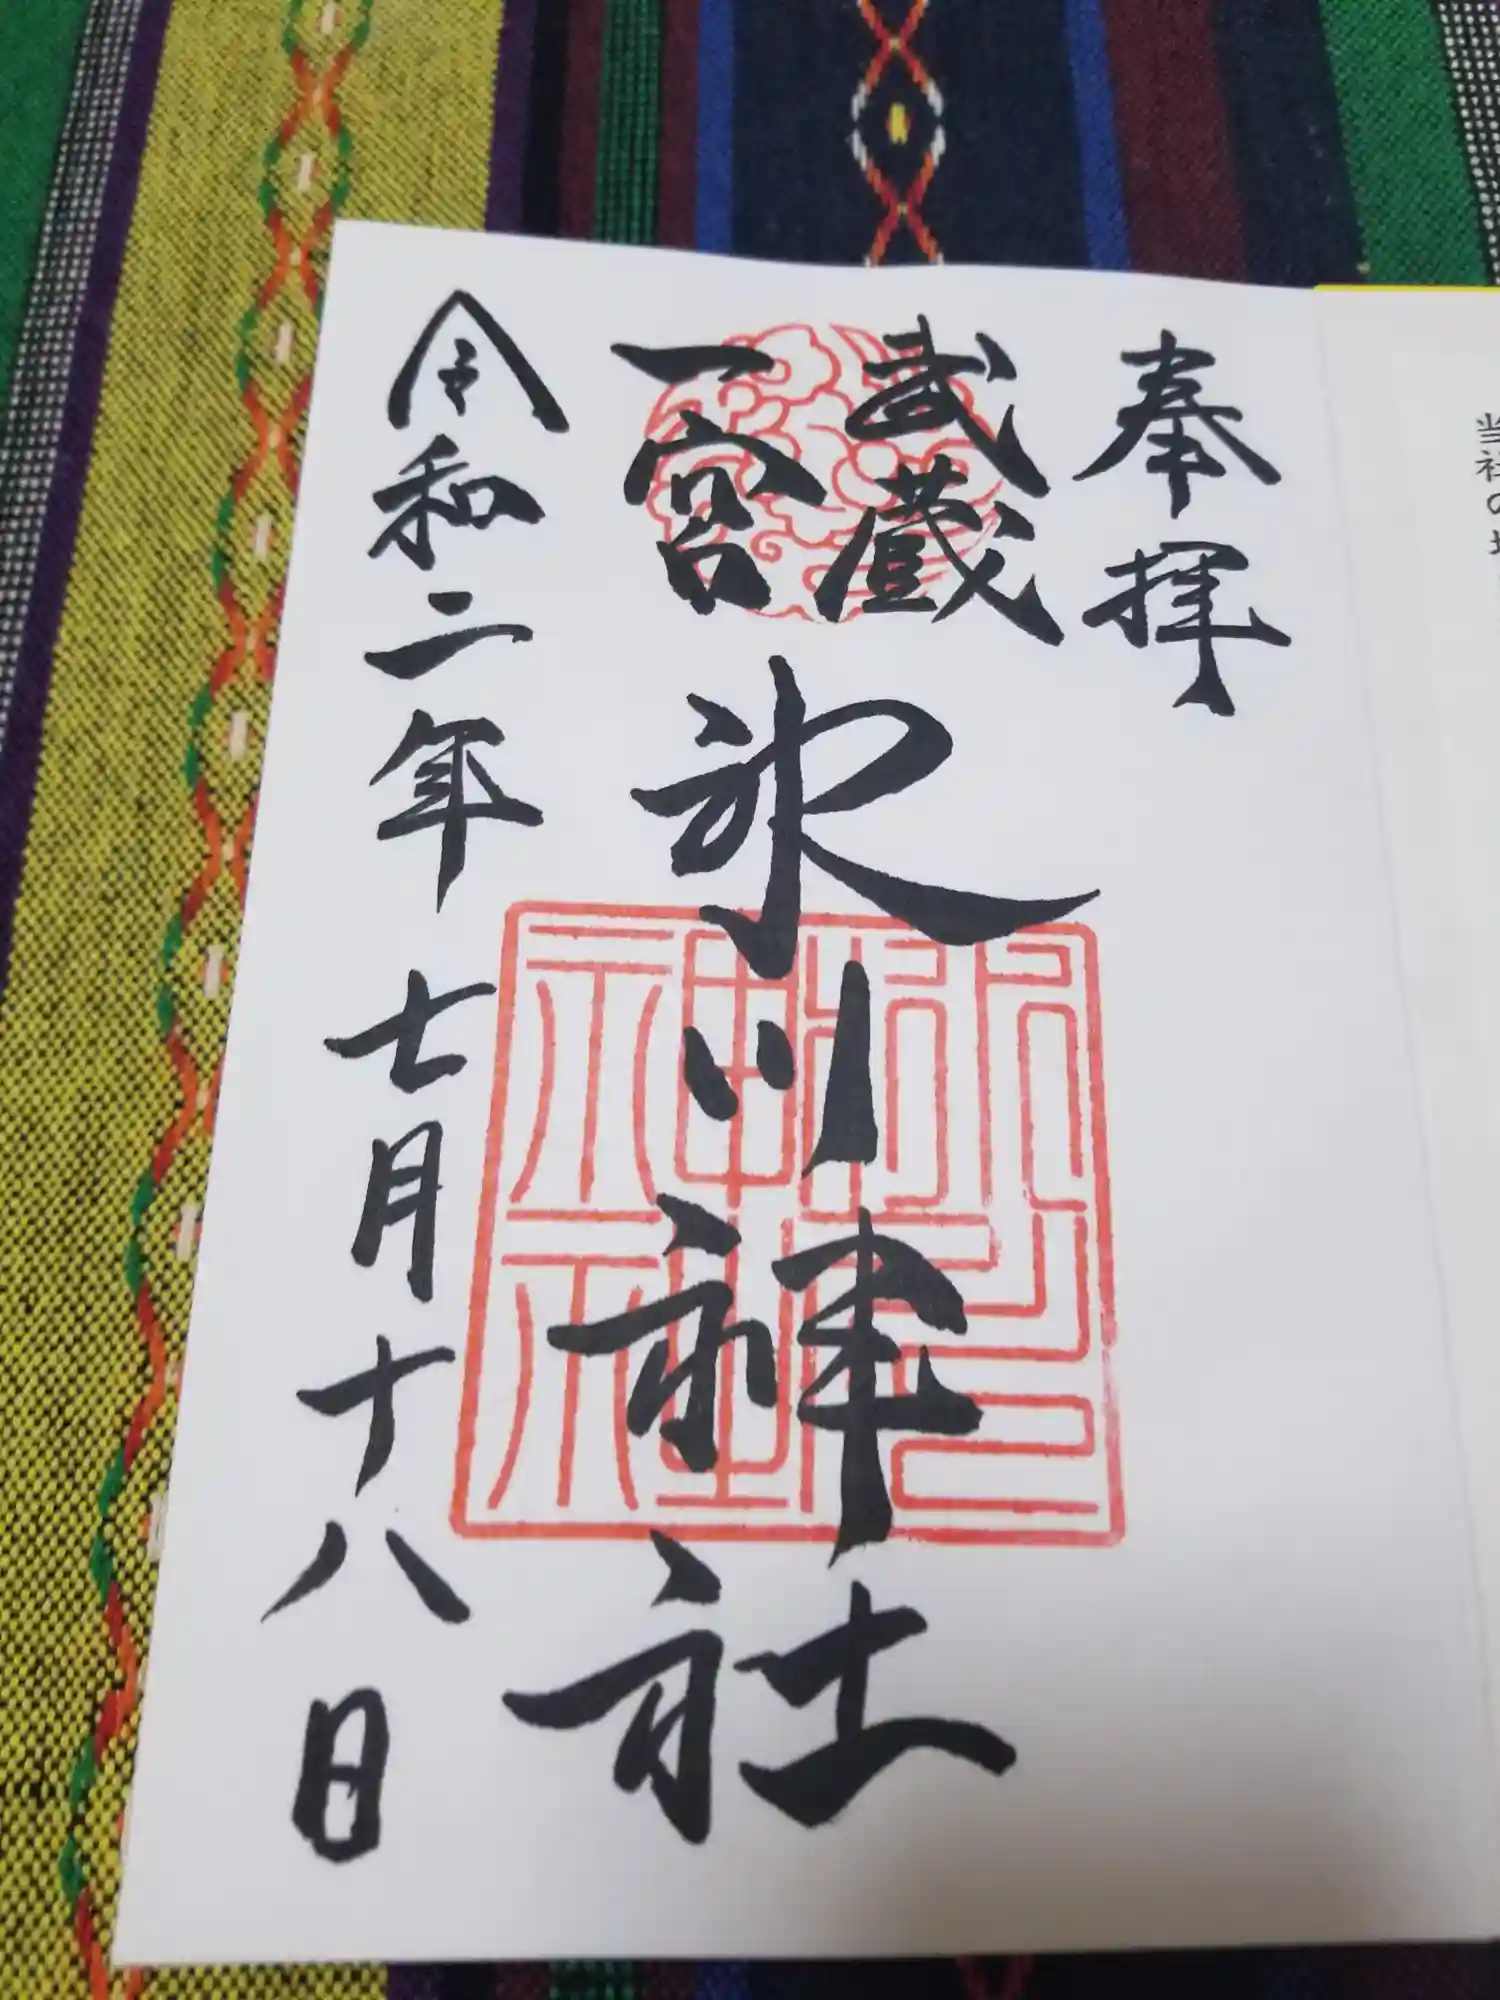 当社の
奉拝
武蔵
一宮
氷川神社
令和二年七月十八日